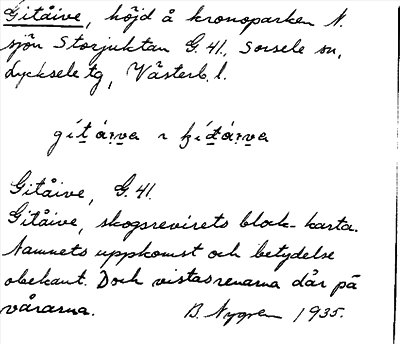 Gitåive, höjd å kronoparken N.
sjön Storjuktan G. 41, Sorsele sn,
Lycksele tg, Västerb. l.
Gitåive, G. 41.
Gitåive, skogsrevirets block-karta.
Namnets uppkomst och betydelse
obekant. Dock vistas renarna där på
vårarna. B. Nygren 1935.